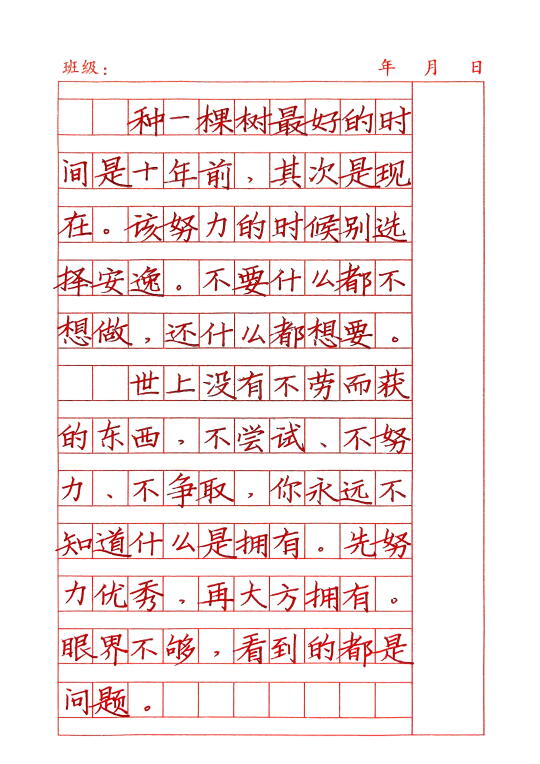 班级： 年 月 日
种一棵树最好的时
间是十年前，其次是现
在。该努力的时候别选
择安逸。不要什么都不
想做，还什么都想要。
世上没有不劳而获
的东西，不尝试、不努
力、不争取，你永远不
知道什么是拥有。先努
力优秀，再大方拥有。
眼界不够，看到的都是
问题。